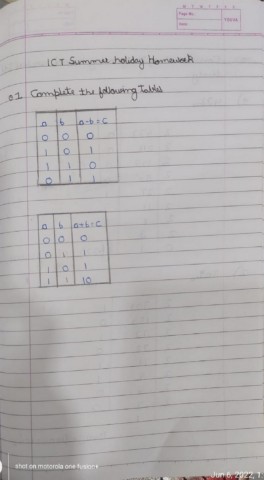 Page No.
Date
YOUVA
ICT Summer holiday Homework
Q1 Complete the following Tables
a b a-b=c
0 0 0
1 0 1
1 1 0
0 1 1
a b a+b=c
0 0 0
0 1 1
1 0 1
1 1 10
shot on motorola one fusion+
Jun 6, 2022, 1